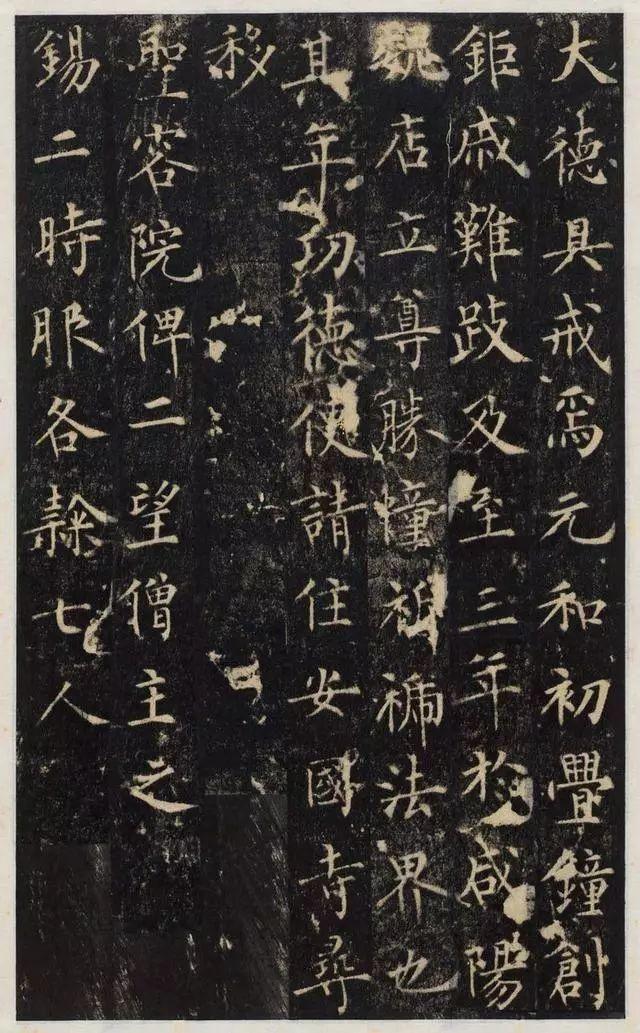 大徳具戒焉元和初疊鐘創
鉅戚難跂及至三年於咸陽
魏店立尊勝幢祈禠法界也
其年功徳使請住安國寺尋
移
聖容院俾二望僧主之
錫二時服各隸七人